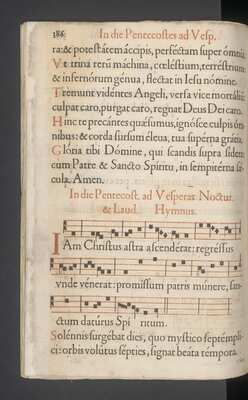 186 In die Pentecostes ad Vesp.
ra: & potestátem áccipis, perféctam super ómnia.
Vt trina rerũ machina, cœléstium, terréstrium
& infernórum génua, flectat in Iesu nómine.
Tremunt vidéntes Angeli, versa vice mortáliũ:
culpat caro, purgat caro, regnat Deus Dei caro.
Hinc te precántes quǽsumus, ignósce culpis óm-
nibus: & corda sursum éleua, tua supérna grátia.
Glória tibi Domine, qui scandis supra sidera:
cum Patre & Sancto Spíritu, in sempitérna sǽ-
cula. Amen.
In die Pentecost. ad Vesperas Noctur.
& Laud. Hymnus.
IAm Christus astra ascénderat: regréssus
vnde vénerat: promíssum patris múnere, san-
ctum datúrus Spi ritum.
Solémnis surgébat dies, quo mystico septémpli-
ci: orbis volútus sépties, signat beáta témpora.